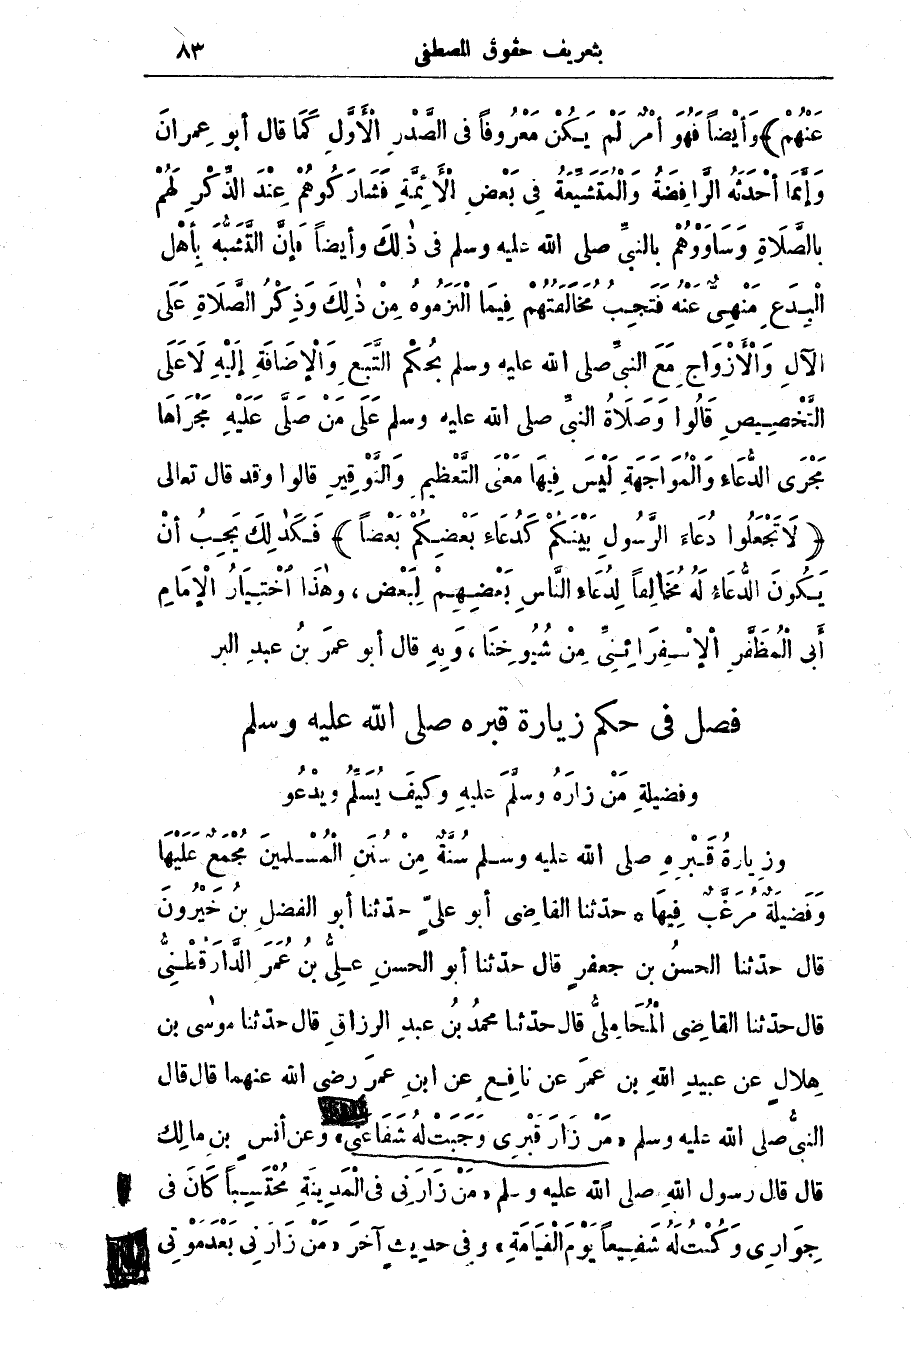 بتعريف حقوق المصطفى ٨٣
عَنْهُمْ﴾ وَأَيْضاً فَهُوَ أَمْرٌ لَمْ يَكُنْ مَعْرُوفاً فى الصَّدْرِ الْأَوَّلِ كَمَا قال أبو عِمرانَ
وَإِنَّمَا أَحْدَثَهُ الرَّافِضَةُ وَالْمُتَشَيِّعَةُ فى بَعْضِ الْأَئِمَّةِ فَشَارَكُوهُمْ عِنْدَ الذِّكْرِ لَهُمْ
بالصَّلَاةِ وَسَاوَوْهُمْ بالنبيِّ صلى الله عليه وسلم فى ذٰلِكَ وأيضاً فَإِنَّ التَّشَبُّهَ بِأَهْلِ
الْبِدَعِ مَنْهِىٌّ عَنْهُ فَتَجِبُ مُخَالَفَتُهُمْ فِيمَا الْتَزَمُوهُ مِنْ ذٰلِكَ وَذِكْرُ الصَّلَاةِ عَلَى
الآلِ وَالْأَزْوَاجِ مَعَ النبىِّ صلى الله عليه وسلم بِحُكْمِ التَّبَعِ وَالْإِضَافَةِ إِلَيْهِ لَا عَلَى
التَّخْصِيصِ قَالُوا وَصَلَاةُ النبىِّ صلى الله عليه وسلم عَلَى مَنْ صَلَّى عَلَيْهِ مَجْرَاهَا
مَجْرَى الدُّعَاءِ وَالْمُوَاجَهَةِ لَيْسَ فِيهَا مَعْنَى التَّعْظِيمِ وَالتَّوْقِيرِ قالوا وقد قال تعالى
﴿ لَا تَجْعَلُوا دُعَاءَ الرَّسُولِ بَيْنَكُمْ كَدُعَاءِ بَعْضِكُمْ بَعْضاً ﴾ فَكَذٰلِكَ يَجِبُ أَنْ
يَكُونَ الدُّعَاءُ لَهُ مُخَالِفاً لِدُعَاءِ النَّاسِ بَعْضِهِمْ لِبَعْضٍ ، وهٰذَا اخْتِيَارُ الْإِمَامِ
أَبى الْمُظَفَّرِ الْإِسْفِرَائِنِىِّ مِنْ شُيُوخِنَا ، وَبِهِ قال أبو عمرَ بنُ عبدِ البر
فصل فى حكم زيارة قبره صلى الله عليه وسلم
وفضيلةِ مَنْ زارَهُ وسلَّمَ عليهِ وكيفَ يُسَلِّمُ ويدْعُو
وزيارةُ قَبْرِهِ صلى الله عليه وسلم سُنَّةٌ مِنْ سُنَنِ الْمُسْلِمِينَ مُجْمَعٌ عَلَيْهَا
وَفَضِيلَةٌ مُرَغَّبٌ فِيهَا * حدّثنا القاضِى أبو علىٍّ حدّثنا أبو الفضل بنُ خَيْرُونَ
قال حدّثنا الحسنُ بن جعفرٍ قال حدّثنا أبو الحسنِ علىُّ بنُ عُمَرَ الدَّارَقُطْنِىُّ
قال حدّثنا القاضِى الْمُحَامِلىُّ قال حدّثنا محمدُ بنُ عبدِ الرزاقِ قال حدّثنا موسٰى بن
هِلالٍ عن عبيدِ اللهِ بن عمرَ عن نافعٍ عن ابنِ عمرَ رضى الله عنهما قال قال
النبىُّ صلى الله عليه وسلم «مَنْ زَارَ قَبْرِى وَجَبَتْ لَهُ شَفَاعَتِى» وعن أنسِ بنِ مالِك
قال قال رسول اللهِ صلى الله عليه وسلم «مَنْ زَارَنِى فى الْمَدِينَةِ مُحْتَسِباً كَانَ فى
جِوَارِى وَكُنْتُ لَهُ شَفِيعاً يَوْمَ الْقِيَامَةِ» وفى حديثٍ آخَرَ «مَنْ زَارَنِى بَعْدَ مَوْتِى